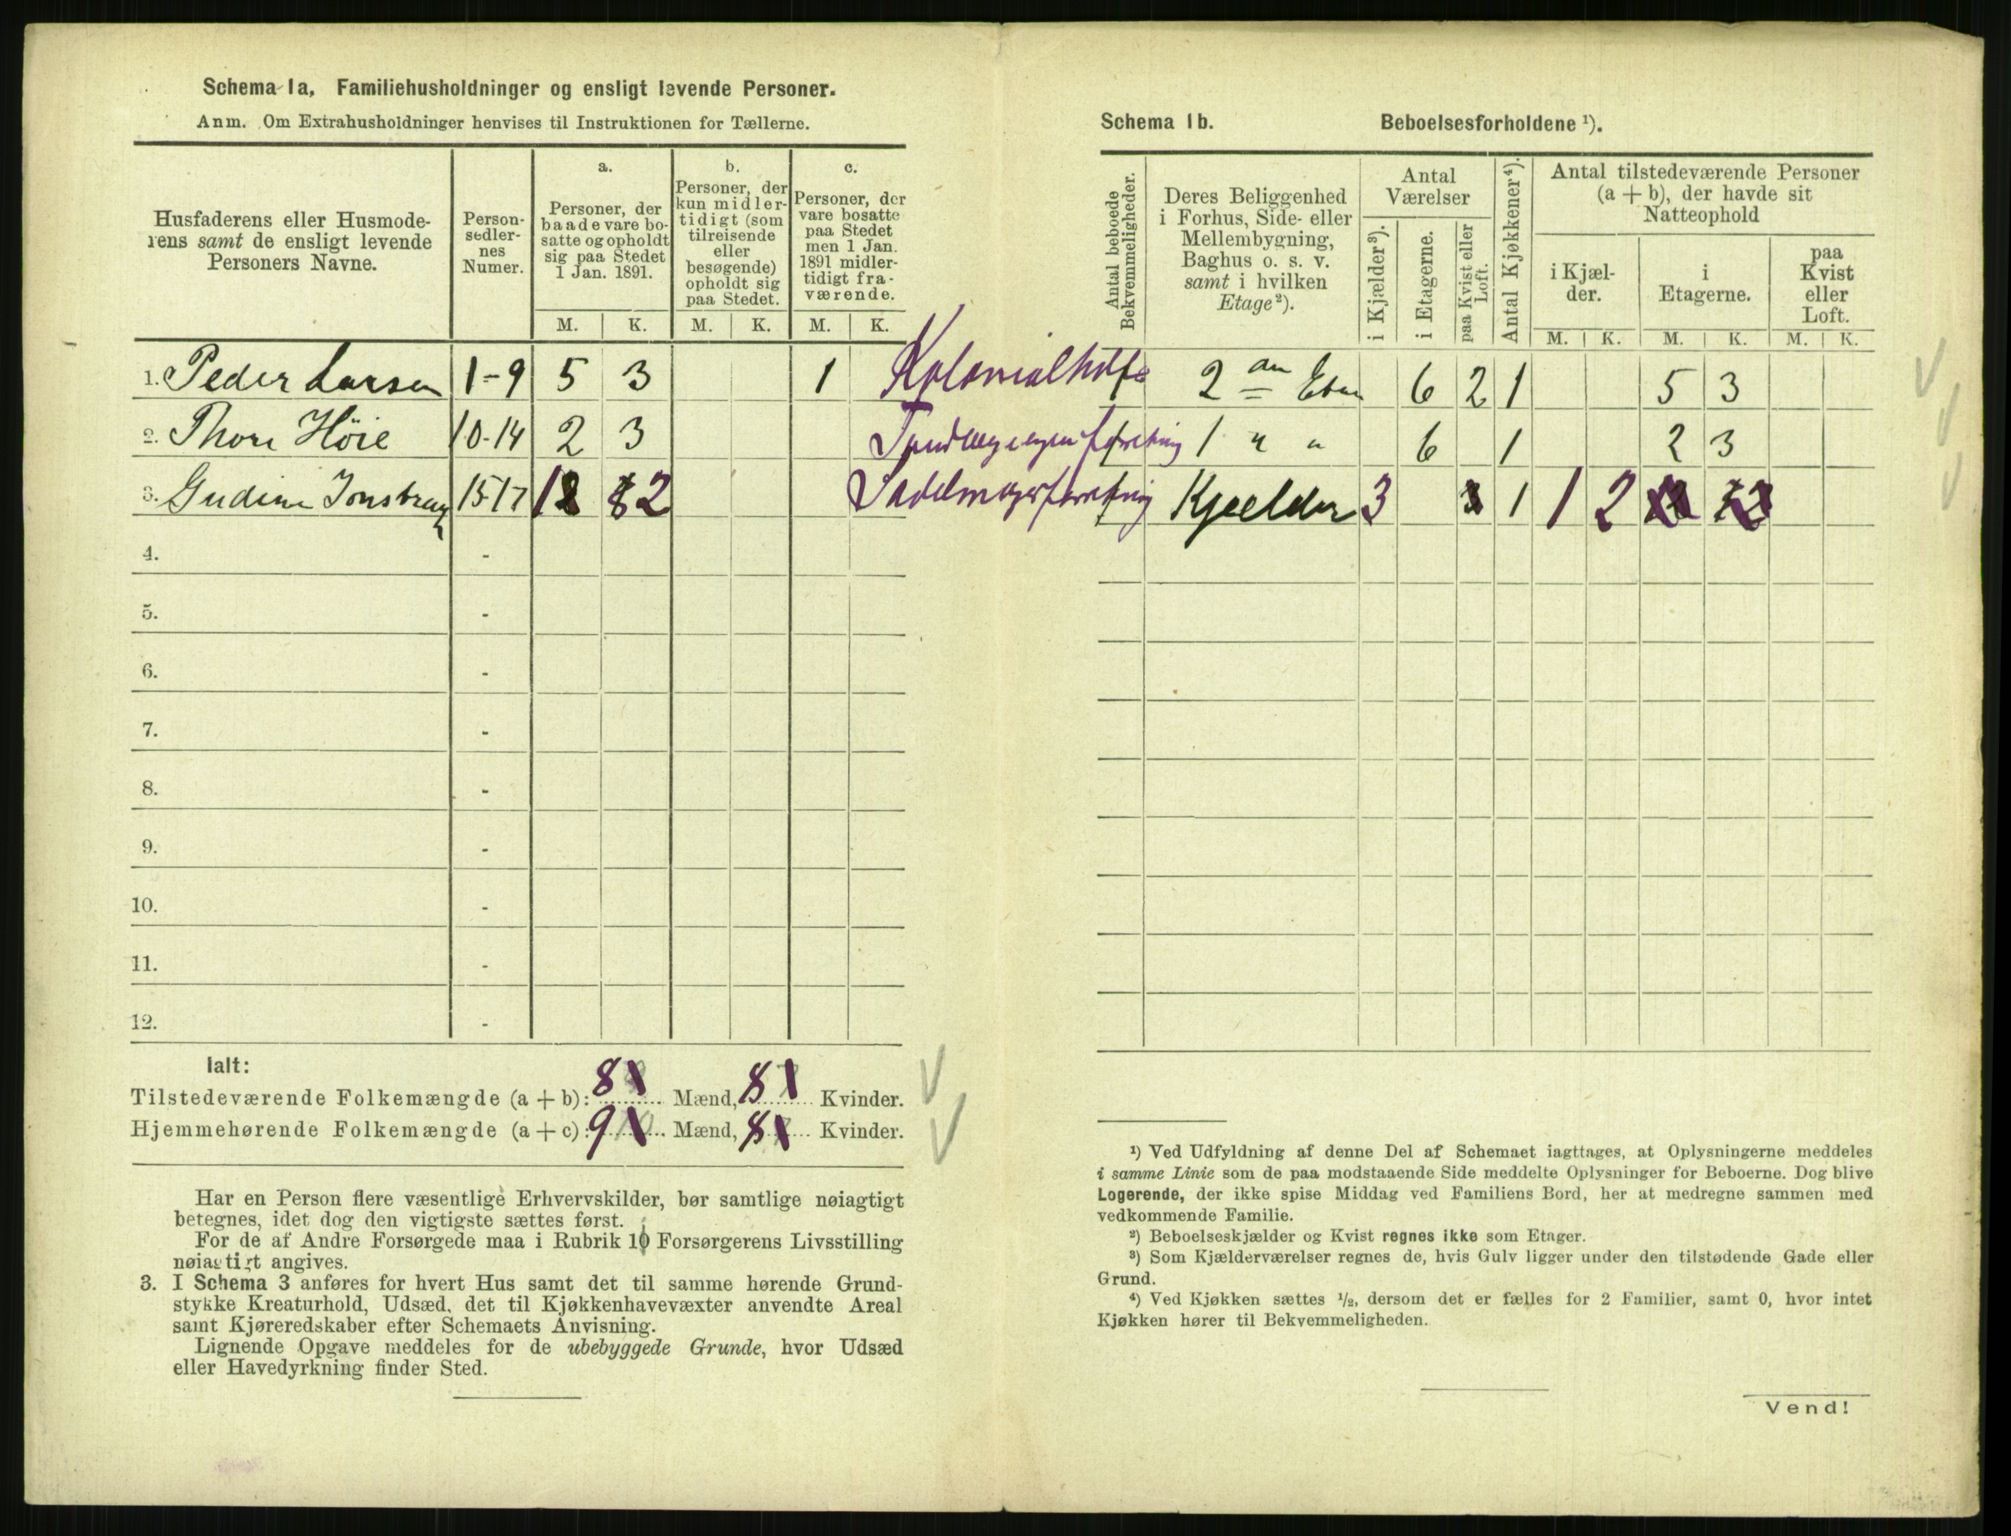 Schema 1a, Familiehusholdninger og ensligt levende Personer.
Anm. Om Extrahusholdninger henvises til Instruktionen for Tællerne.
Husfaderens eller Husmode-
rens samt de ensligt levende
Personers Navne.
Person-
sedler-
nes
Numer.
a.
Personer, der
baade vare bo-
satte og opholdt
sig paa Stedet
1 Jan. 1891.
M. K.
b.
Personer, der
kun midler-
tidigt (som
tilreisende
eller
besøgende)
opholdt sig
paa Stedet.
M. K.
c.
Personer, der
vare bosatte
paa Stedet
men 1 Jan.
1891 midler-
tidigt fra-
værende.
M. K.
1. Peder Larsen 1-9 5 3 1
2. Thore Höie 10-14 2 3
3. Gudine 15-17 1 2
4. -
5. -
6. -
7. -
8. -
9. -
10. -
11. -
12. -
Ialt:
Tilstedeværende Folkemængde (a + b): 8 Mænd, 8 Kvinder.
Hjemmehørende Folkemængde (a + c): 9 Mænd, 8 Kvinder.
Har en Person flere væsentlige Erhvervskilder, bør samtlige nøiagtigt
betegnes, idet dog den vigtigste sættes først.
For de af Andre Forsørgede maa i Rubrik 10 Forsørgerens Livsstilling
nøiagtigt angives.
3. I Schema 3 anføres for hvert Hus samt det til samme hørende Grund-
stykke Kreaturhold, Udsæd, det til Kjøkkenhavevæxter anvendte Areal
samt Kjøreredskaber efter Schemaets Anvisning.
Lignende Opgave meddeles for de ubebyggede Grunde, hvor Udsæd
eller Havedyrkning finder Sted.
Schema 1b. Beboelsesforholdene ¹).
Antal beboede
Bekvemmeligheder.
Deres Beliggenhed
i Forhus, Side- eller
Mellembygning,
Baghus o. s. v.
samt i hvilken
Etage²).
Antal
Værelser
i Kjælder³).
i Etagerne.
paa Kvist eller
Loft.
Antal Kjøkkener⁴).
Antal tilstedeværende Personer
(a + b), der havde sit
Natteophold
i Kjæl-
der.
M. K.
i
Etagerne.
M. K.
paa
Kvist
eller
Loft.
M. K.
2 6 2 1 5 3
1 " " 6 1 2 3
Kjælder 3 1 1 2
¹) Ved Udfyldning af denne Del af Schemaet iagttages, at Oplysningerne meddeles
i samme Linie som de paa modstaaende Side meddelte Oplysninger for Beboerne. Dog blive
Logerende, der ikke spise Middag ved Familiens Bord, her at medregne sammen med
vedkommende Familie.
²) Beboelseskjælder og Kvist regnes ikke som Etager.
³) Som Kjælderværelser regnes de, hvis Gulv ligger under den tilstødende Gade eller
Grund.
⁴) Ved Kjøkken sættes ½, dersom det er fælles for 2 Familier, samt 0, hvor intet
Kjøkken hører til Bekvemmeligheden.
Vend!